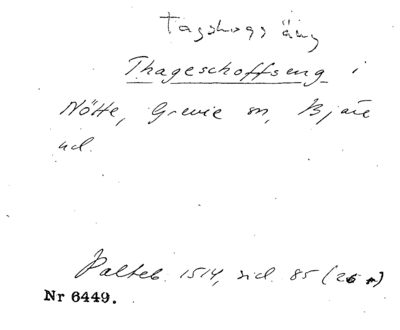 Tagshogs äng
Thageschoffseng i
Nötte, Grevie sn, Bjäre
hd.
Palteb. 1514, sid. 85 (26 r)
Nr 6449.